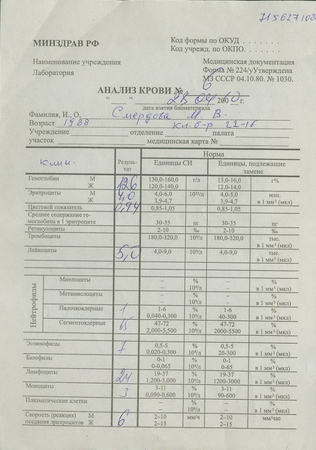 МИНЗДРАВ РФ
Код формы по ОКУД
Код учрежд. по ОКПО.
Наименование учреждения
Медицинская документация
Форма № 224/уУтверждена
Лаборатория
МЗ СССР 04.10.80. № 1030.
АНАЛИЗ КРОВИ № 6
дата взятия биоматериала
Фамилия, И., О. Смердова М В.
Возраст 1988
Учреждение отделение палата
участок медицинская карта №
клин.
Резуль-
тат
Норма
Единицы СИ
Единицы, подлежащие
замене
Гемоглобин М 126 130,0-160,0 г/л 13,0-16,0 г%
Ж 120,0-140,0 12,0-14,0
Эритроциты М 4,0 4,0-5,0 10¹²/л 4,0-5,0 млн.
Ж 3,9-4,7 3,9-4,7 в 1 мм³ (мкл)
Цветовой показатель 0,94 0,85-1,05 0,85-1,05
Среднее содержание ге-
моглобина в 1 эритроците 30-35 пг 30-35 пг
Ретикулоциты 2-10 ‰ 2-10 ‰
Тромбоциты 180,0-320,0 10⁹/л 180,0-320,0 тыс.
в 1 мм³ (мкл)
Лейкоциты 5,0 4,0-9,0 10⁹/л 4,0-9,0 тыс.
в 1 мм³ (мкл)
Нейтрофилы
Миелоциты - % - %
- 10⁹/л - в 1 мм³ (мкл)
Метамиелоциты - % - %
- 10⁹/л - в 1 мм³ (мкл)
Палочкоядерные 1 1-6 % 1-6 %
0,040-0,300 10⁹/л 40-300 в 1 мм³ (мкл)
Сегментоядерные 65 47-72 % 47-72 %
2,000-5,500 10⁹/л 2000-5500 в 1 мм³ (мкл)
Эозинофилы 0,5-5 % 0,5-5 %
0,020-0,300 10⁹/л 20-300 в 1 мм³ (мкл)
Базофилы 0-1 % 0-1 %
0-0,065 10⁹/л 0-65 в 1 мм³ (мкл)
Лимфоциты 24 19-37 % 19-37 %
1,200-3,000 10⁹/л 1200-3000 в 1 мм³ (мкл)
Моноциты 3 3-11 % 3-11 %
0,090-0,600 10⁹/л 90-600 в 1 мм³ (мкл)
Плазматические клетки - % - %
- 10⁹/л - в 1 мм³ (мкл)
Скорость (реакция) М 6 2–10 мм/ч 2–10 мм/час
оседания эритроцитов Ж 2–15 2–15